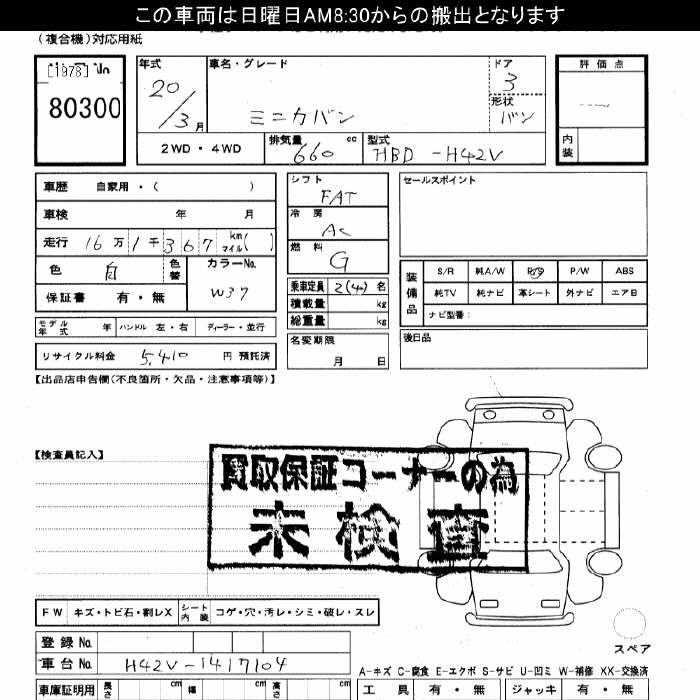 この車両は日曜日AM8:30からの搬出となります
(複合機)対応用紙
[1978] No
80300
年式
20/3月
車名・グレード
ミニカバン
ドア
3
形状
バン
評価点
内装
2WD・4WD
排気量
660 cc
型式
HBD-H42V
車歴 自家用・( )
車検 年 月
走行 16万1千367 km マイル( )
色 白 色替
カラーNo.
W37
保証書 有・無
シフト
FAT
冷房
AC
燃料
G
乗車定員 2(4)名
積載量 kg
総重量 kg
セールスポイント
装備品
S/R 純A/W P/S P/W ABS
純TV 純ナビ 革シート 外ナビ エアB
ナビ型番:
モデル年式 年 ハンドル 左・右 ディーラー・並行
名変期限
月 日
後日品
リサイクル料金 5,410 円 預託済
【出品店申告欄(不良箇所・欠品・注意事項等)】
【検査員記入】
買取保証コーナーの為
未検査
FW キズ・トビ石・割レX シート内装 コゲ・穴・汚レ・シミ・破レ・スレ
スペア
登録No.
車台No. H42V-1417104
A-キズ C-腐食 E-エクボ S-サビ U-凹ミ W-補修 XX-交換済
車庫証明用 長さ cm 幅 cm 高さ cm
工具 有・無 ジャッキ 有・無